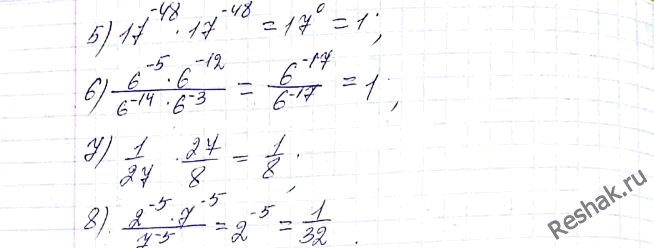 5) 17^-48 · 17^-48 = 17^0 = 1;
6) (6^-5 · 6^-12)/(6^-14 · 6^-3) = 6^-17/6^-17 = 1;
7) 1/27 · 27/8 = 1/8;
8). (2^-5 · 7^-5)/7^-5 = 2^-5 = 1/32.
Reshak.ru